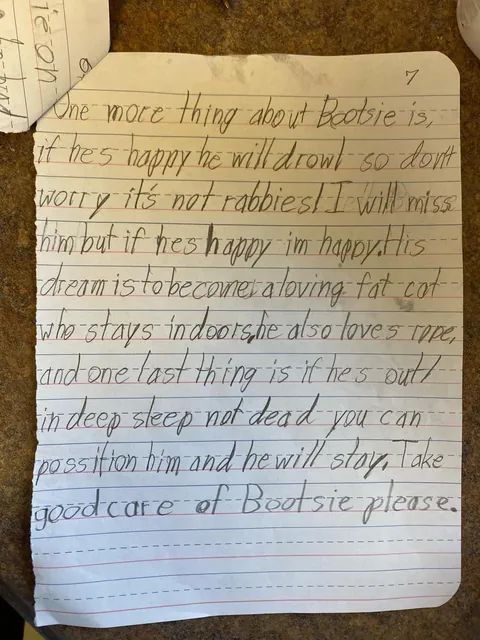 7
One more thing about Bootsie is,
if he's happy he will drowl so don't
worry it's not rabbies! I will miss
him but if hes happy im happy. His
dream is to become a loving fat cat
who stays indoors, he also loves rope,
and one last thing is if he's out/
in deep sleep not dead you can
possition him and he will stay. Take
good care of Bootsie please.